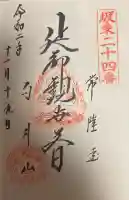 坂東二十四番
常陸国
延命観世音
雨引山
令和二年
十一月十九日